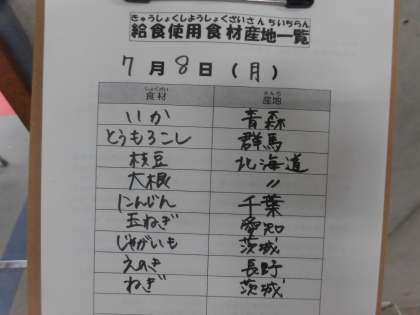 きゅうしょくしようしょくざいさんちいちらん
給食使用食材産地一覧
7月8日(月)
しょくざい さんち
食材 産地
いか 青森
とうもろこし 群馬
枝豆 北海道
大根 〃
にんじん 千葉
玉ねぎ 愛知
じゃがいも 茨城
えのき 長野
ねぎ 茨城